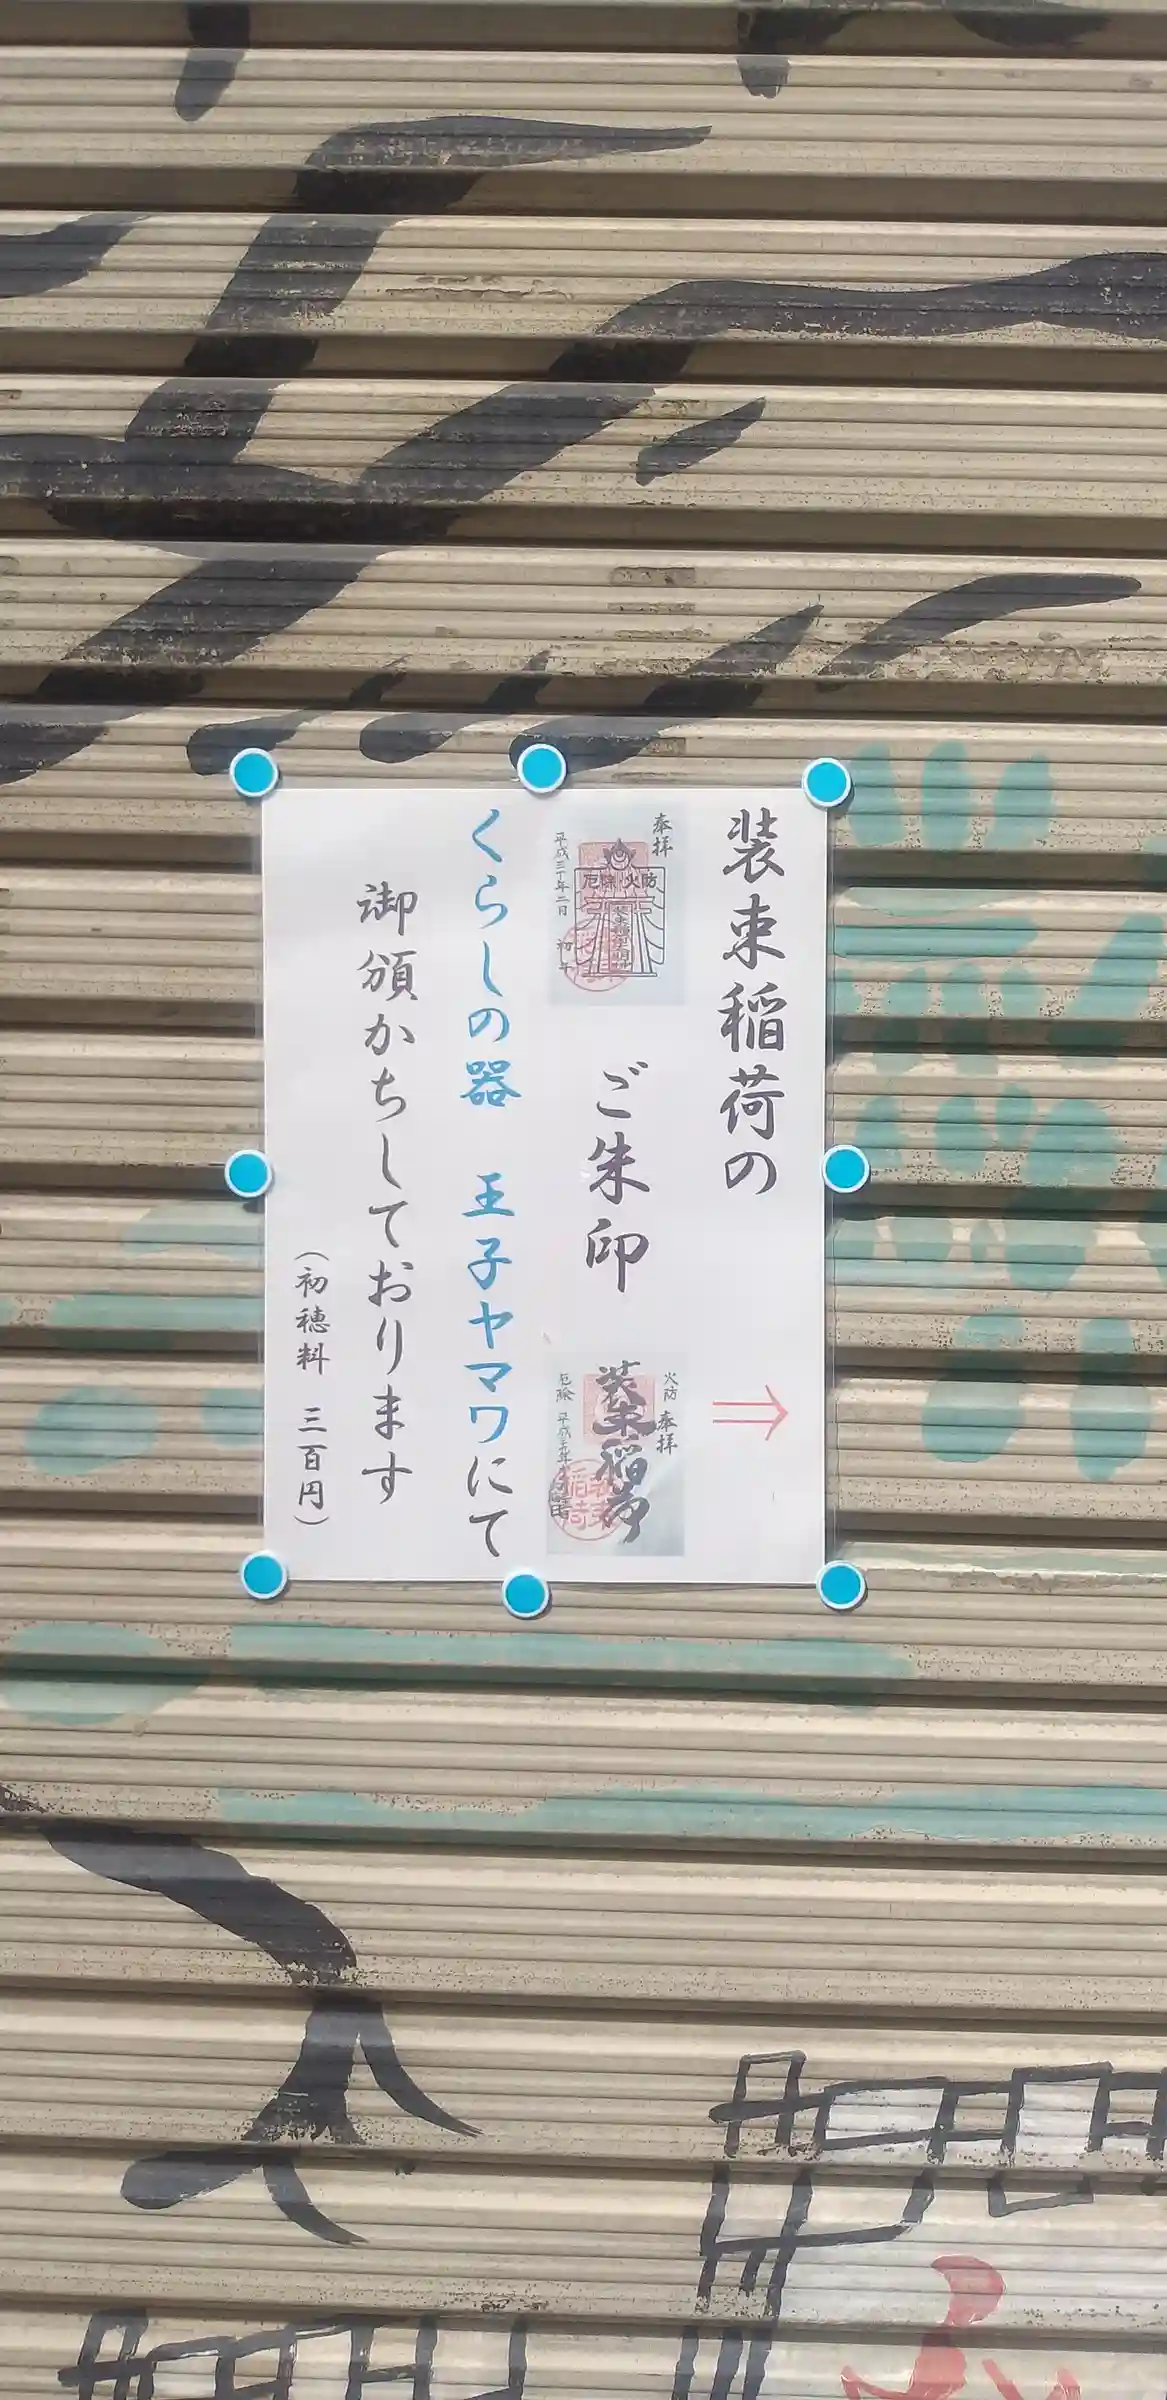 装束稲荷の
ご朱印
奉拝
厄除 火防
平成三十年二月
火防
奉拝
装束稲荷
厄除
くらしの器 王子ヤマワにて
御頒かちしております
（初穂料 三百円）